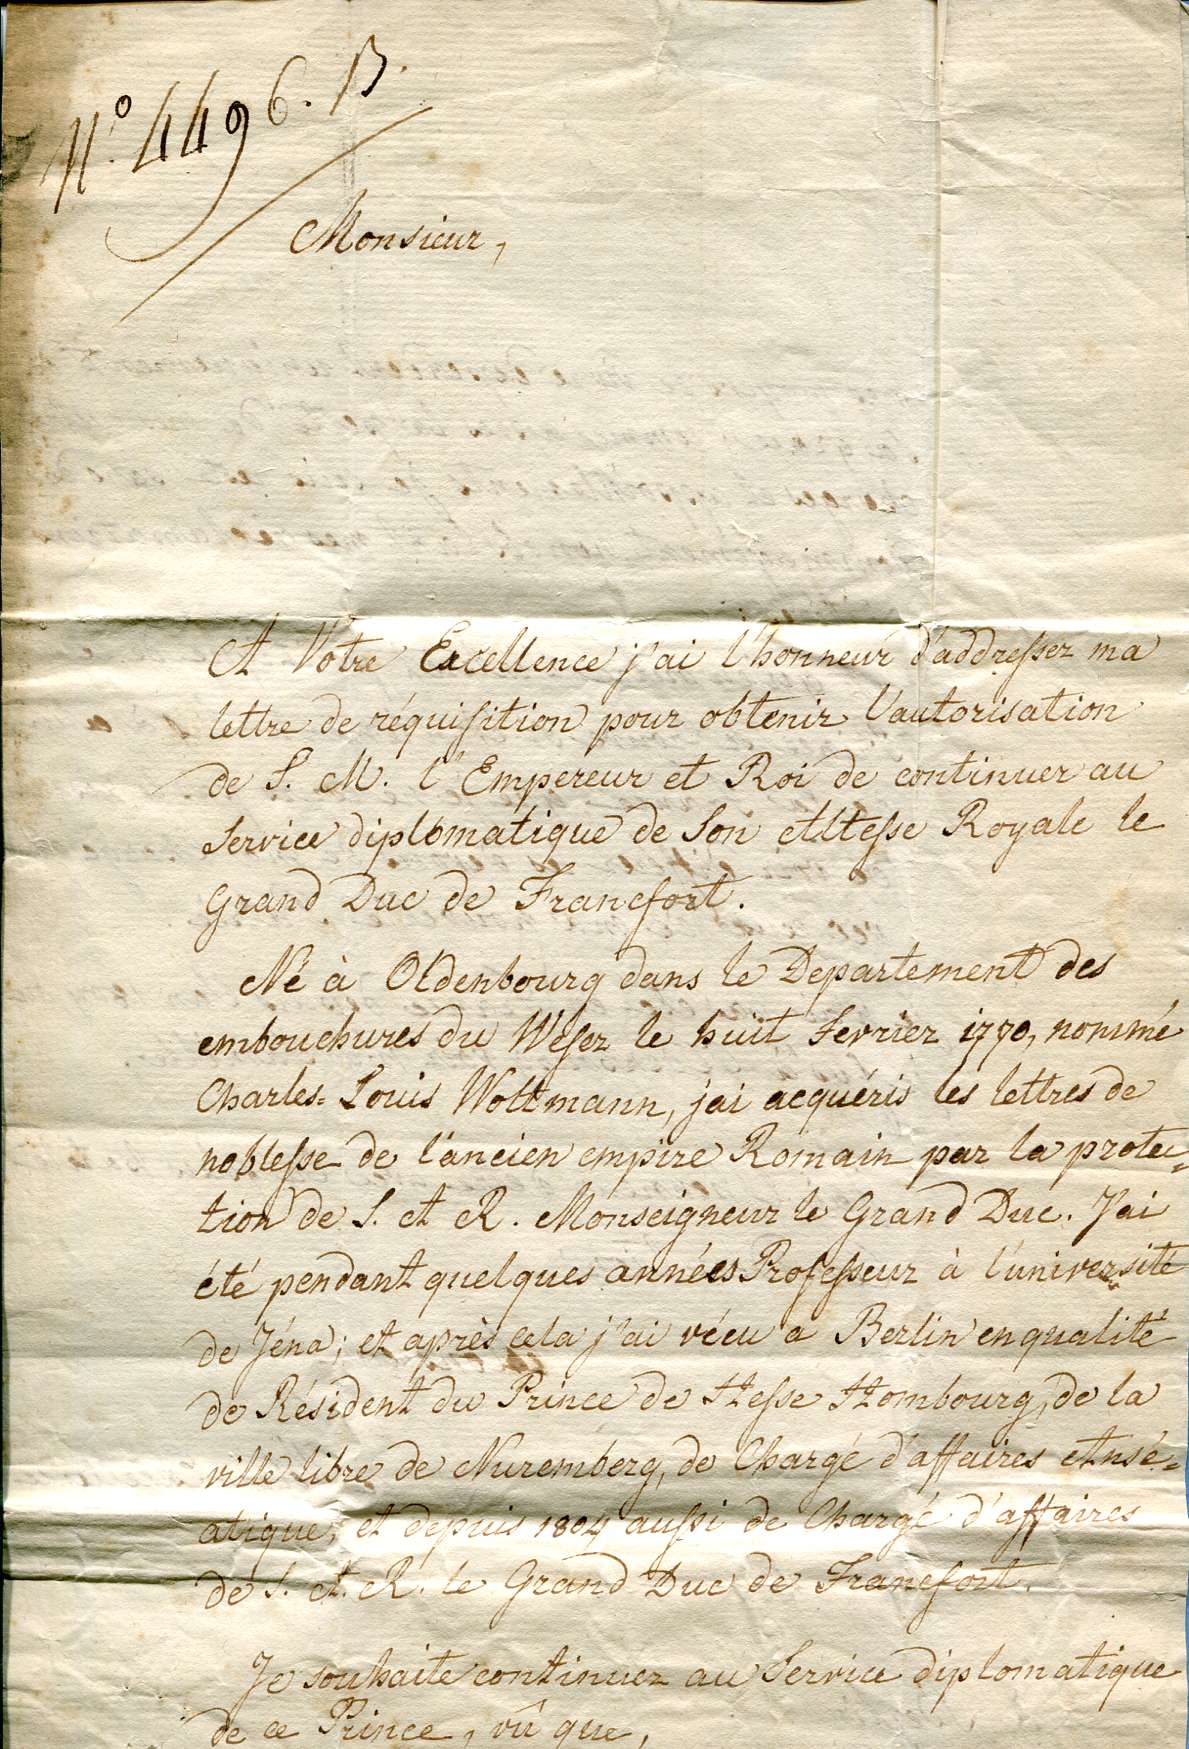 N.º 4496. B.
Monsieur,
A Votre Excellence j'ai l'honneur d'addresser ma
lettre de réquisition pour obtenir l'autorisation
de S. M. l'Empereur et Roi de continuer au
Service diplomatique de Son Altesse Royale le
Grand Duc de Francfort.
Né à Oldenbourg dans le Departement des
embouchures du Weser le huit Fevrier 1770, nommé
Charles-Louis Woltmann, j'ai acquéris les lettres de
noblesse de l'ancien empire Romain par la protec=
tion de S. A R. Monseigneur le Grand Duc. J'ai
été pendant quelques années Professeur à l'université
de Jéna; et après cela j'ai vécu a Berlin en qualité
de Résident du Prince de Hesse Hombourg, de la
ville libre de Nuremberg, de Chargé d'affaires Ansé=
atique, et depuis 1804 aussi de Chargé d'affaires
de S. A. R. le Grand Duc de Francfort.
Je souhaite continuer au Service diplomatique
de ce Prince, vû que,